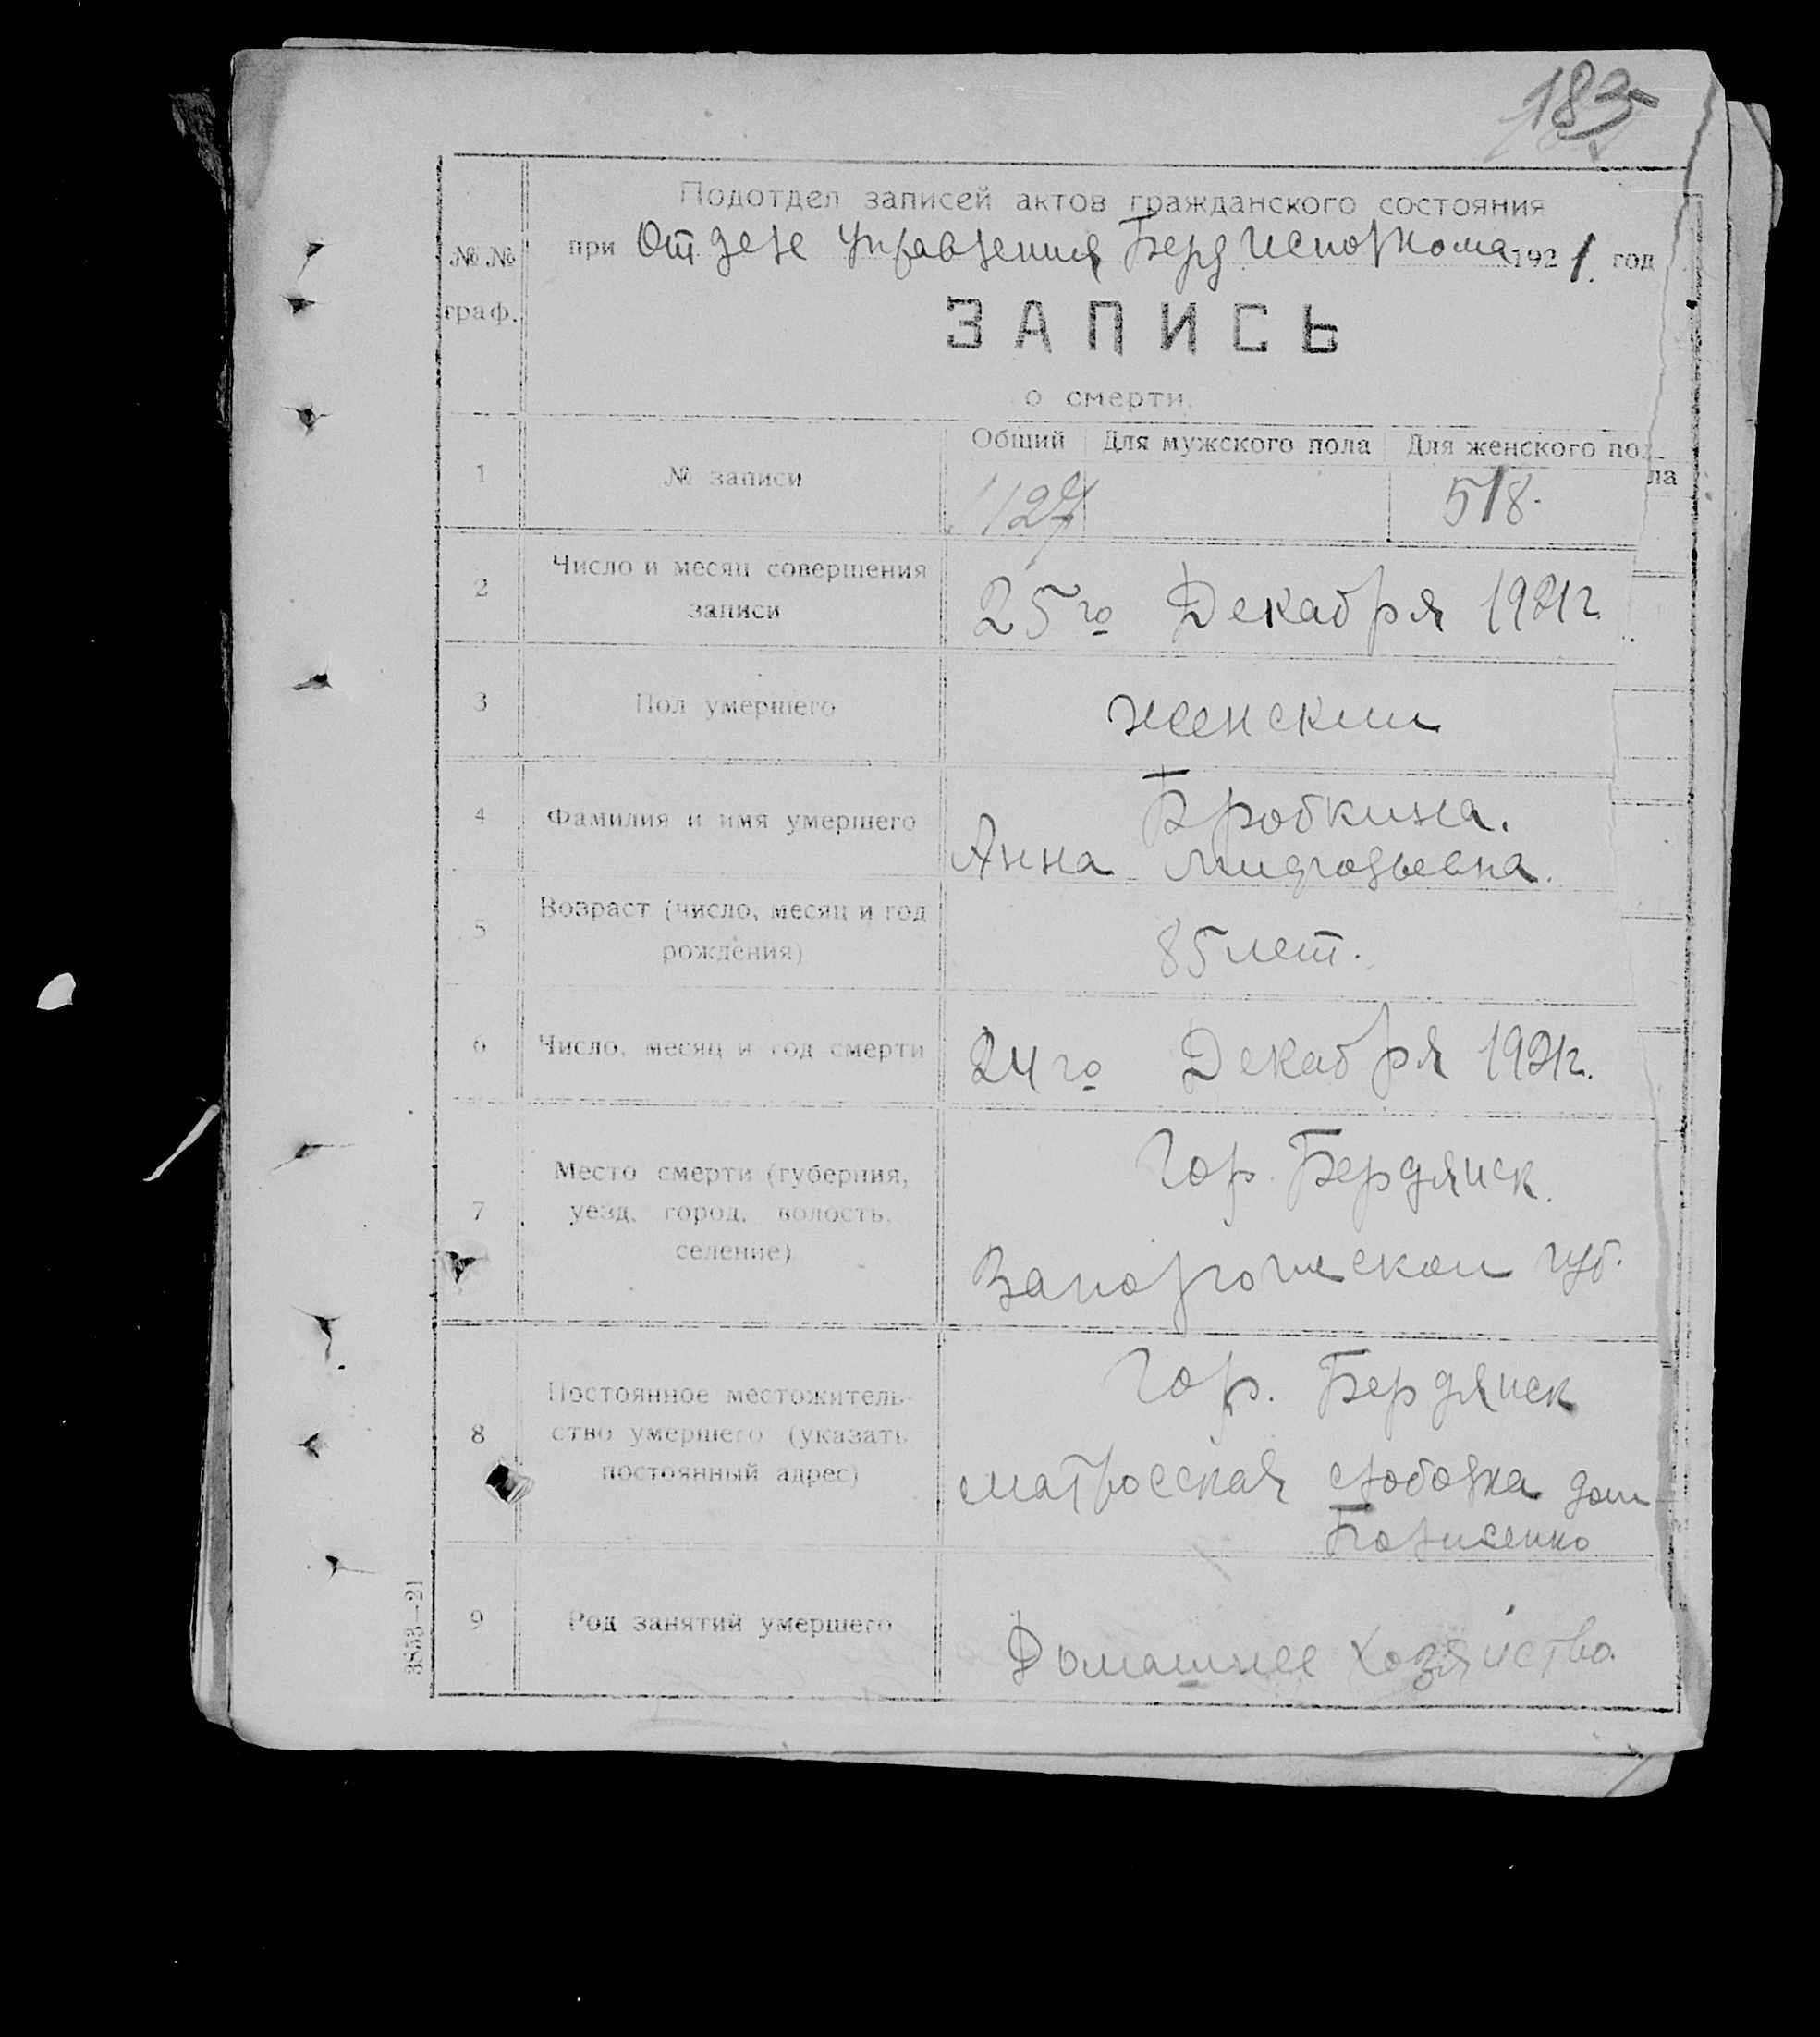 183
Подотдел записей актов гражданского состояния
№№ граф.
при Отделе Управления Берд Исполкома 1921. год
ЗАПИСЬ
о смерти.
Общий Для мужского пола Для женского пола
1 № записи 518.
2 Число и месяц совершения
записи
25го Декабря 1921г.
3 Пол умершего женский
4 Фамилия и имя умершего
Бробкина.
Анна
5 Возраст (число, месяц и год
рождения)
85 лет.
6 Число, месяц и год смерти 24го Декабря 1921г.
7 Место смерти (губерния,
уезд, город, волость,
селение)
Гор. Бердянск.
Запорожской губ.
8 Постоянное местожитель-
ство умершего (указать
постоянный адрес)
Гор. Бердянск
матросская слободка дом
9 Род занятий умершего Домашнее хозяйство.
3853—21